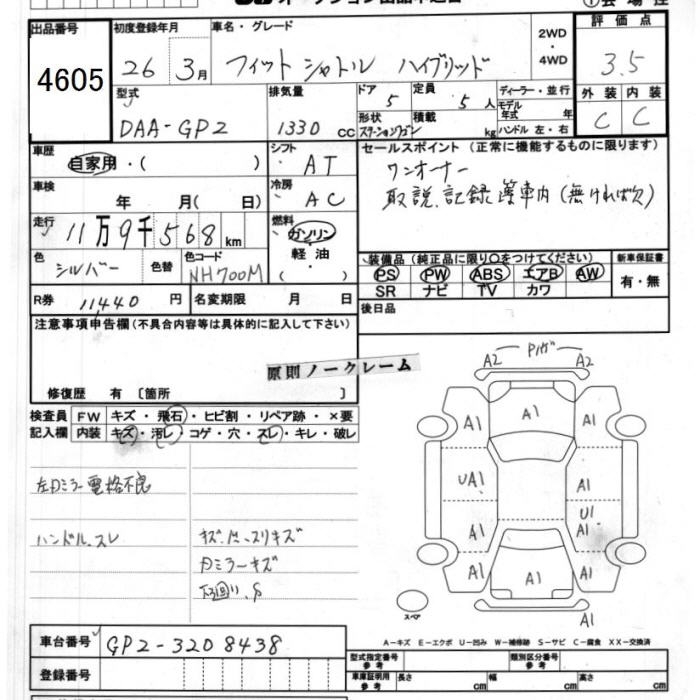 出品番号 初度登録年月 車名・グレード 2WD・4WD 評価点
4605 26 3月 フィット シャトル ハイブリッド 3.5
型式 排気量 ドア 定員 ディーラー・並行 外装 内装
DAA-GP2 1330 cc 5 5人 モデル年式 年 C C
形状 ステーションワゴン 積載 kg ハンドル 左・右
車歴 自家用・( ) シフト AT セールスポイント (正常に機能するものに限ります)
車検 年 月( 日) 冷房 AC ワンオーナー
取説、記録簿車内(無ければ欠)
走行 11万9千568km 燃料 ガソリン・軽油・
色 シルバー 色替 色コード NH700M
装備品 (純正品に限り○をつけてください) 新車保証書
PS PW ABS エアB AW 有・無
SR ナビ TV カワ
R券 11,440円 名変期限 月 日 後日品
注意事項申告欄(不具合内容等は具体的に記入して下さい)
原則ノークレーム
修復歴 有 〔箇所 〕
検査員 FW キズ・飛石・ヒビ割・リペア跡・×要
記入欄 内装 キズ・汚レ・コゲ・穴・スレ・キレ・破レ
左Dミラー電格不良
ハンドル、スレ
キズ、ド、スリキズ
Dミラーキズ
下廻り、S
A2 Pバガ A2
A1 A1 A1
UA1 A1
U1
A1 A1
A1 A1 A1
スペア A1
A-キズ E-エクボ U-凹み W-補修跡 S-サビ C-腐食 XX-交換済
車台番号 GP2-3208438
登録番号
型式指定番号 参考 類別区分番号 参考
車庫証明用 参考 長さ cm 幅 cm 高さ cm